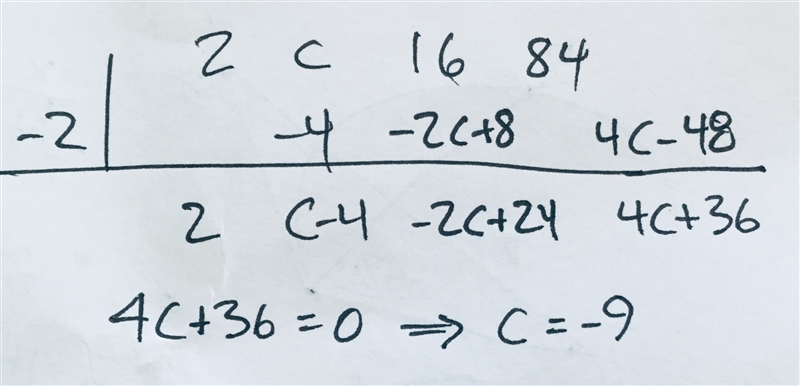 2 C 16 84
-2 | -4 -2C+8 4C-48
2 C-4 -2C+24 4C+36
4C+36=0 ⟹ C=-9